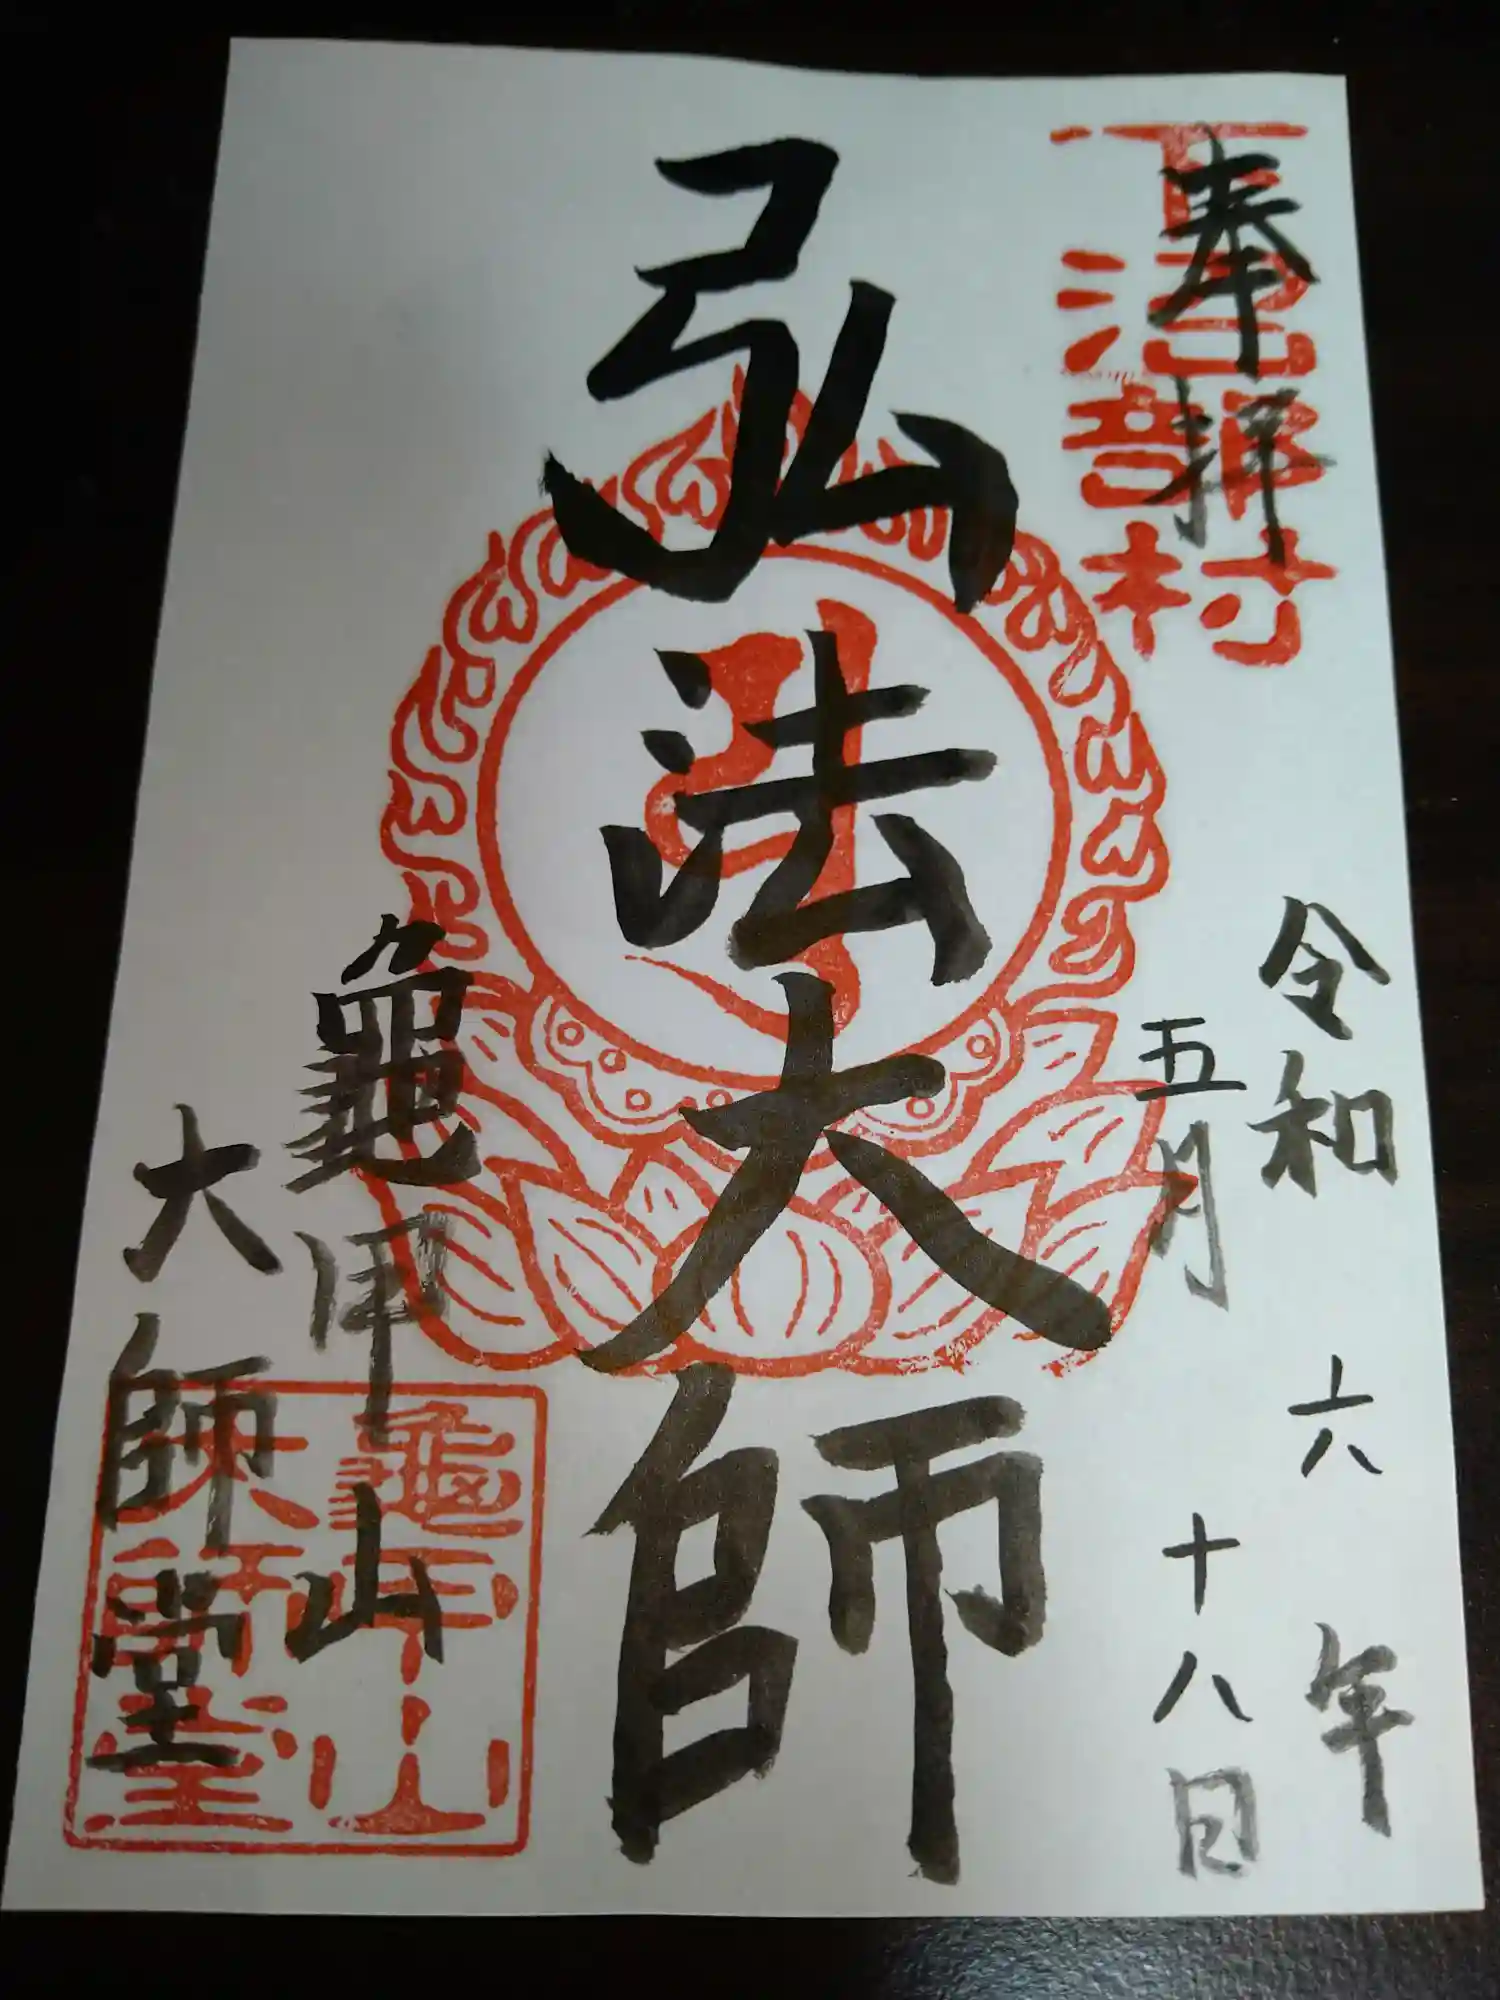 奉拝
下沼部村
令和六年
五月十八日
弘法大師
亀甲山
大師堂
龜甲山
大師堂